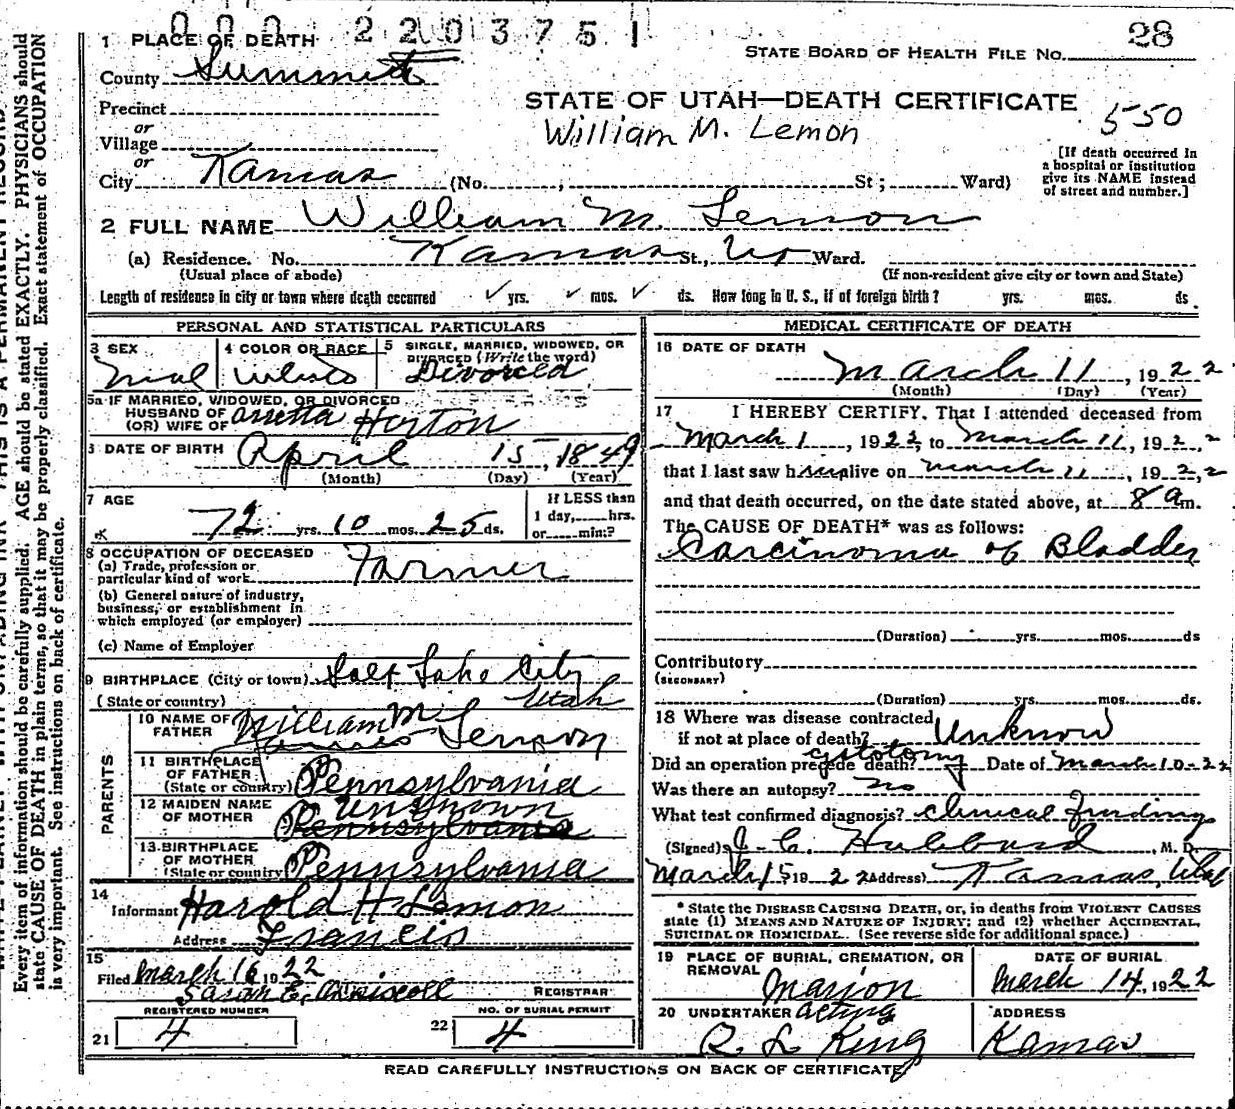 0 0 0 2 2 0 3 7 5 1
28
1 PLACE OF DEATH
STATE BOARD OF HEALTH FILE No.
County Summit
STATE OF UTAH—DEATH CERTIFICATE
550
Precinct
William M. Lemon
or
Village
or
[If death occurred in
a hospital or institution
give its NAME instead
of street and number.]
City Kamas (No. , St ; Ward)
2 FULL NAME William M. Lemon
(a) Residence. No. Kamas St., Ut Ward.
(Usual place of abode) (If non-resident give city or town and State)
Length of residence in city or town where death occurred ✓ yrs. ✓ mos. ✓ ds. How long in U. S., if of foreign birth? yrs. mos. ds.
PERSONAL AND STATISTICAL PARTICULARS
3 SEX
Mal
4 COLOR OR RACE
White
5 SINGLE, MARRIED, WIDOWED, OR
DIVORCED (Write the word)
Divorced
5a IF MARRIED, WIDOWED, OR DIVORCED
HUSBAND OF
(OR) WIFE OF Horton
DATE OF BIRTH April 15, 1849
(Month) (Day) (Year)
7 AGE
72 yrs. 10 mos. 25 ds.
If LESS than
1 day, hrs.
or min.?
8 OCCUPATION OF DECEASED
(a) Trade, profession or
particular kind of work Farmer
(b) General nature of industry,
business, or establishment in
which employed (or employer)
(c) Name of Employer
9 BIRTHPLACE (City or town) Salt Lake City
(State or country) Utah
PARENTS
10 NAME OF
FATHER William M
Lemon
11 BIRTHPLACE
OF FATHER
(State or country) Pennsylvania
12 MAIDEN NAME
OF MOTHER Unknown
Pennsylvania
13 BIRTHPLACE
OF MOTHER
(State or country) Pennsylvania
14
Informant Harold H Lemon
Address Francis
15
Filed March 16 1922
Sarah E. REGISTRAR
REGISTERED NUMBER
21 4
NO. OF BURIAL PERMIT
22 4
MEDICAL CERTIFICATE OF DEATH
16 DATE OF DEATH
March 11, 1922
(Month) (Day) (Year)
17 I HEREBY CERTIFY, That I attended deceased from
March 1, 1922, to March 11, 1922
that I last saw him alive on March 11, 1922
and that death occurred, on the date stated above, at 8 am.
The CAUSE OF DEATH* was as follows:
Carcinoma of Bladder
(Duration) yrs. mos. ds
Contributory
(SECONDARY)
(Duration) yrs. mos. ds.
18 Where was disease contracted
if not at place of death? Unknown
cystotomy
Did an operation precede death? Date of March 10-22
Was there an autopsy? no
What test confirmed diagnosis? clinical findings
(Signed) J. C. Hubbard, M. D.
March 15 1922 Address) Kamas, Utah
* State the DISEASE CAUSING DEATH, or, in deaths from VIOLENT CAUSES
state (1) MEANS AND NATURE OF INJURY; and (2) whether ACCIDENTAL,
SUICIDAL OR HOMICIDAL. (See reverse side for additional space.)
19 PLACE OF BURIAL, CREMATION, OR
REMOVAL
Marion
DATE OF BURIAL
March 14, 1922
20 UNDERTAKER acting
R. L. King
ADDRESS
Kamas
READ CAREFULLY INSTRUCTIONS ON BACK OF CERTIFICATE
Every item of information should be carefully supplied. AGE should be stated EXACTLY. PHYSICIANS should
state CAUSE OF DEATH in plain terms, so that it may be properly classified. Exact statement of OCCUPATION
is very important. See instructions on back of certificate.